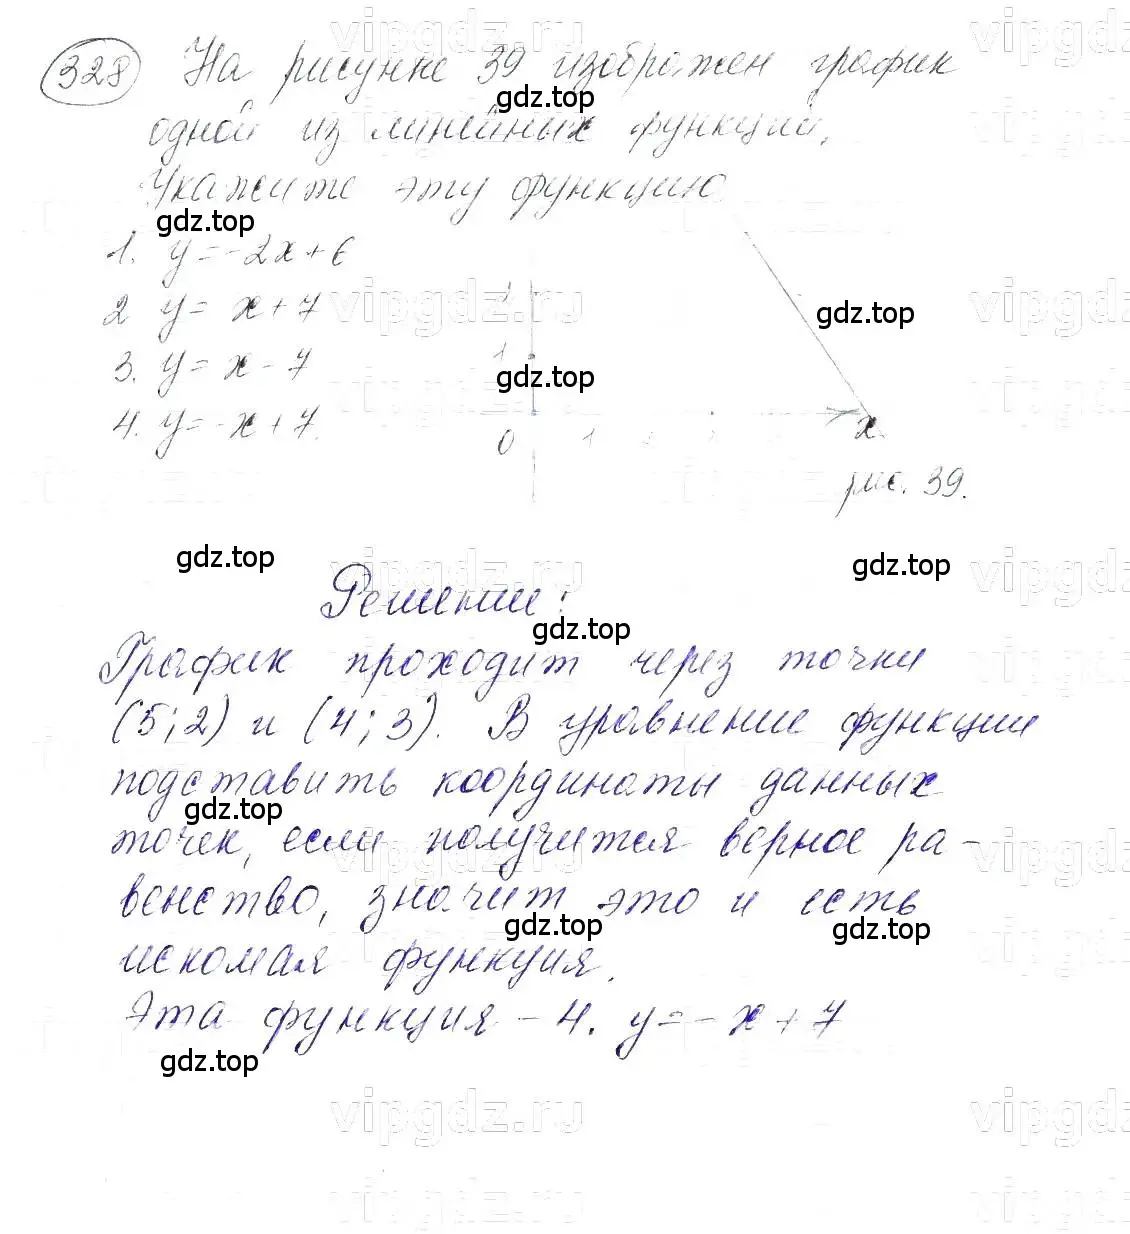 328 На рисунке 39 изображен график
gdz.top
одной из линейных функций.
Укажите эту функцию
gdz.top
1. y = -2x + 6
2 y = x + 7
gdz.top
3. y = x - 7
gdz.top
4. y = -x + 7.
1
1
0 1 2 3 x
рис. 39.
gdz.top gdz.top
Решение:
gdz.top
График проходит через точки
(5; 2) и (4; 3). В уравнение функции
подставить координаты данных
gdz.top
точек, если получится верное ра-
венство, значит это и есть
gdz.top gdz.top
искомая функция.
Эта функция – 4. y = -x + 7
gdz.top
vipgdz.ru